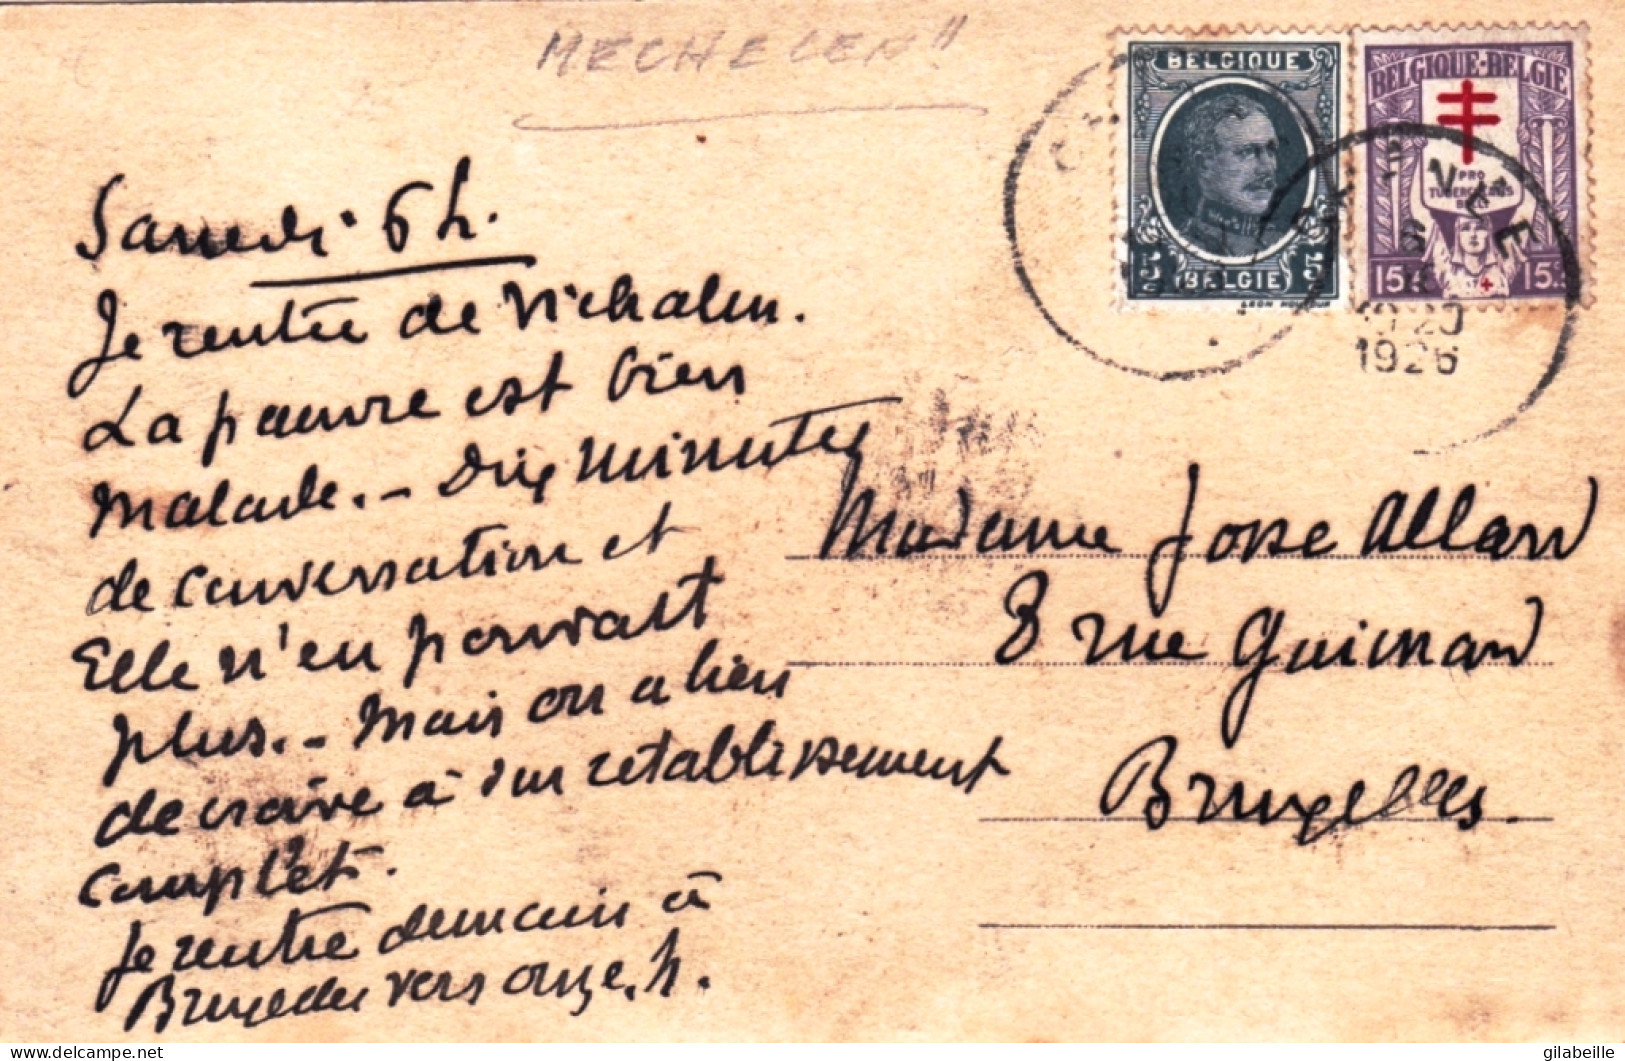 MECHELEN"
BELGIQUE
5 5
BELGIE
BELGIQUE-BELGIE
PRO
15 15
1926
Samedi. 6 h.
Je rentre de Vichalen.
La pauvre est bien
malade. - Dix minutes
de conversation et
Elle n'en pouvait
plus. - Mais on a lieu
de croire à un rétablissement
complet.
Je rentre demain à
Bruxelles vers onze h.
Madame Josse Allard
8 rue Guimard
Bruxelles.
delcampe.net
gilabeille